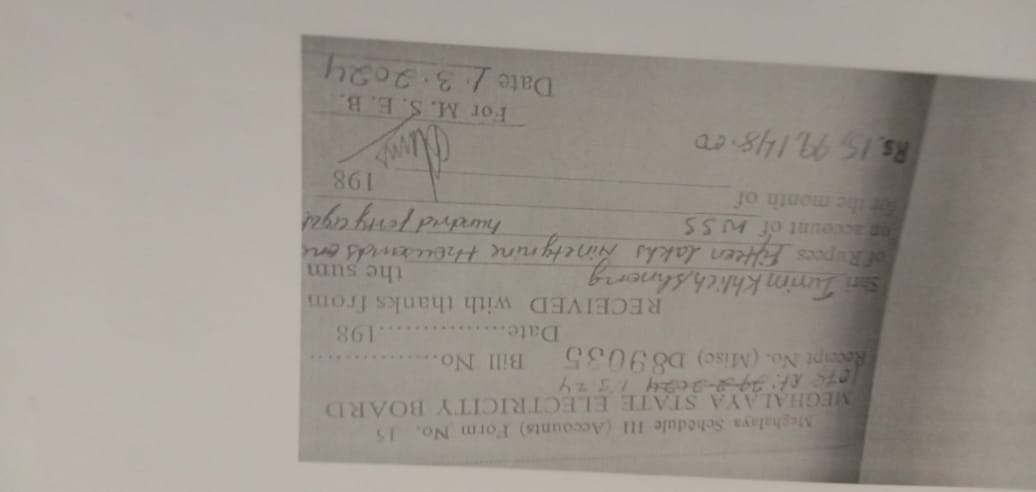 Meghalaya Schedule III (Accounts) Form No. 15
MEGHALAYA STATE ELECTRICITY BOARD
1.3.24
Receipt No. (Misc) D89035 Bill No................
Date................198
RECEIVED with thanks from
Shri the sum
of Rupees fifteen Lakhs Ninetynine thousands one
on account of WSS hundred forty eight
for the month of 198
Rs. 15,99,148.00
For M. S. E. B.
Date 1.3.2024